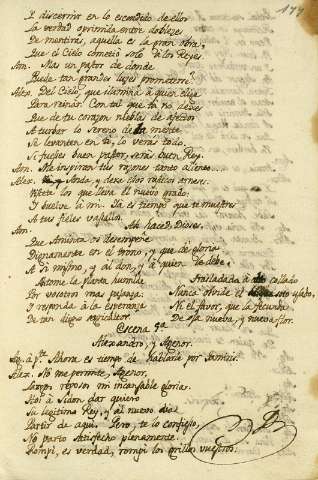 177
Y discernir en lo escondido de ellos
La verdad oprimida entre dobleces
De mentiras, aquella es la gran obra,
Que el Cielo cometió solo à los Reyes.
Am. Mas un pastor de donde
Puede tan grandes luces prometerse?
Alex. Del Cielo, que ilumina à quien elije
Para reinar. Con tal que tu no dejes
Que de tu corazon nieblas de afectos
A turbar lo sereno de la mente
Se levanten en ti, lo veras todo.
Si fuistes buen pastor, seras buen Rey.
Am. Me inspiran tus razones tanto aliento...
Alex. Anda, y deja
Vistete los que lleva el nuevo grado,
Y vuelve à mi. Ya es tiempo que te muestres
A tus fieles vasallos.
Am. Ah haced, Dioses,
Que Aminta se desempeñe
Dignamente en el trono, y que dè gloria
A si mismo, y al don, y à quien lo debe.
Astome la planta humilde
Por vosotros mas
Y responda à la esperanza
De tan digno agricultor.
Trasladada à collado
Nunca olvide el soto,
Ni el favor, que la fecunda
De oja nueva, y nueva flor.
Escena 9ª
Alexandro, y Agenor.
Ag. à pte. Ahora es tiempo de hablarle por Tamiris.
Alex. No me permite, Agenor,
reposo mi incansable gloria.
Hoi à Sidon dar quiero
Su legitimo Rey, y al nuevo dia
Partir de aqui. Pero, te lo confieso,
No parto satisfecho plenamente.
Rompi, es verdad, rompi los grillos vuestros.